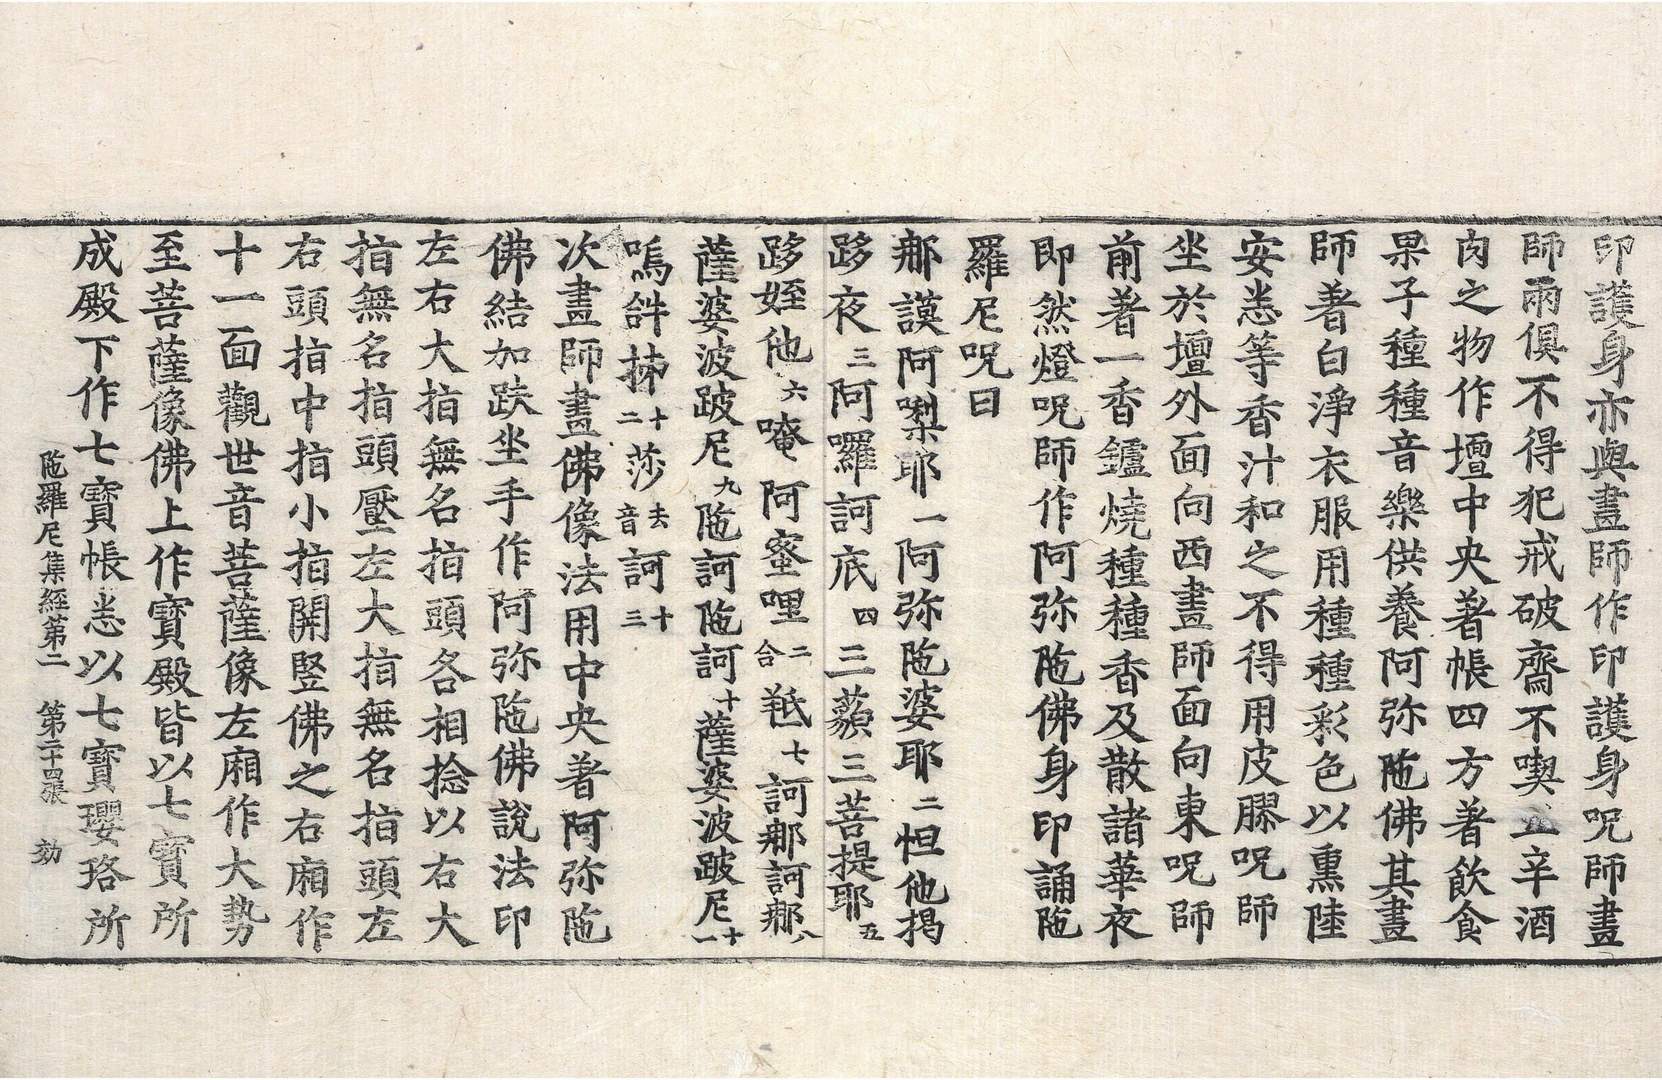 印護身亦與畫師作印護身呪師畫
師兩俱不得犯戒破齋不喫五辛酒
肉之物作壇中央著帳四方著飲食
果子種種音樂供養阿弥陁佛其畫
師著白淨衣服用種種彩色以熏陸
安悉等香汁和之不得用皮膠呪師
坐於壇外面向西畫師面向東呪師
前著一香鑪燒種種香及散諸華夜
即然燈呪師作阿弥陁佛身印誦陁
羅尼呪曰
那謨阿㗚耶一阿弥陁婆耶二怛他揭
跢夜三阿囉訶底四三藐三菩提耶五
跢姪他六唵阿蜜哩二合羝七訶那訶那八
薩婆波跛尼九陁訶陁訶十薩婆波跛尼十一
嗚𤙖抹十二莎去音訶十三
次畫師畫佛像法用中央著阿弥陁
佛結加趺坐手作阿弥陁佛說法印
左右大指無名指頭各相捻以右大
指無名指頭壓左大指無名指頭左
右頭指中指小指開竪佛之右廂作
十一面觀世音菩薩像左廂作大勢
至菩薩像佛上作寶殿皆以七寶所
成殿下作七寶帳悉以七寶瓔珞所
陁羅尼集經第二 第二十四張 効